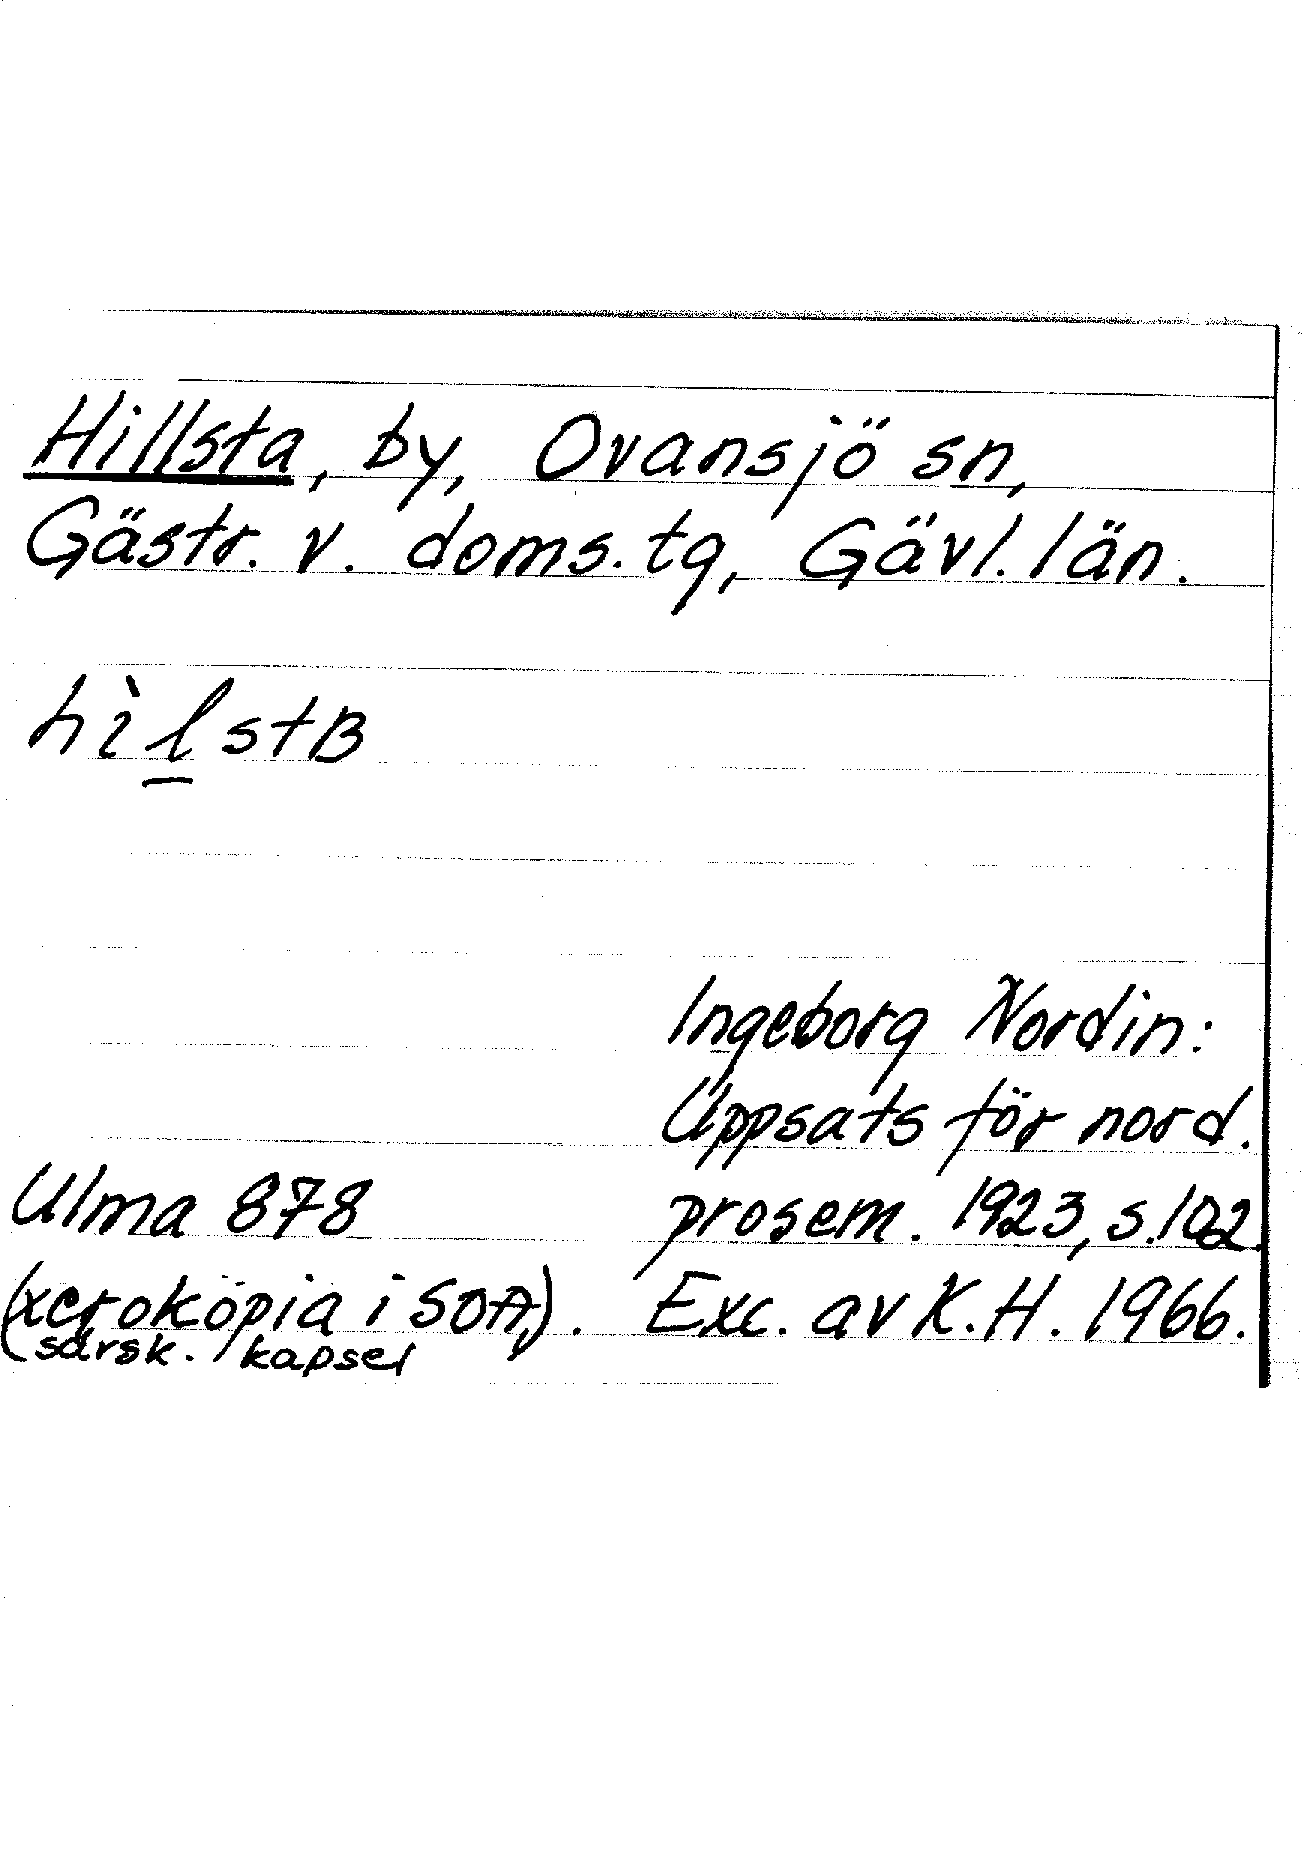 Hillsta, by, Ovansjö sn,
Gästr. v. doms.tg, Gävl. län.
hìl̲stB
Ingeborg Nordin:
Uppsats för nord.
Ulma 878 prosem. 1923, s.102.
(xerokopia i SOA,). Exc. av K.H. 1966.
särsk. kapsel